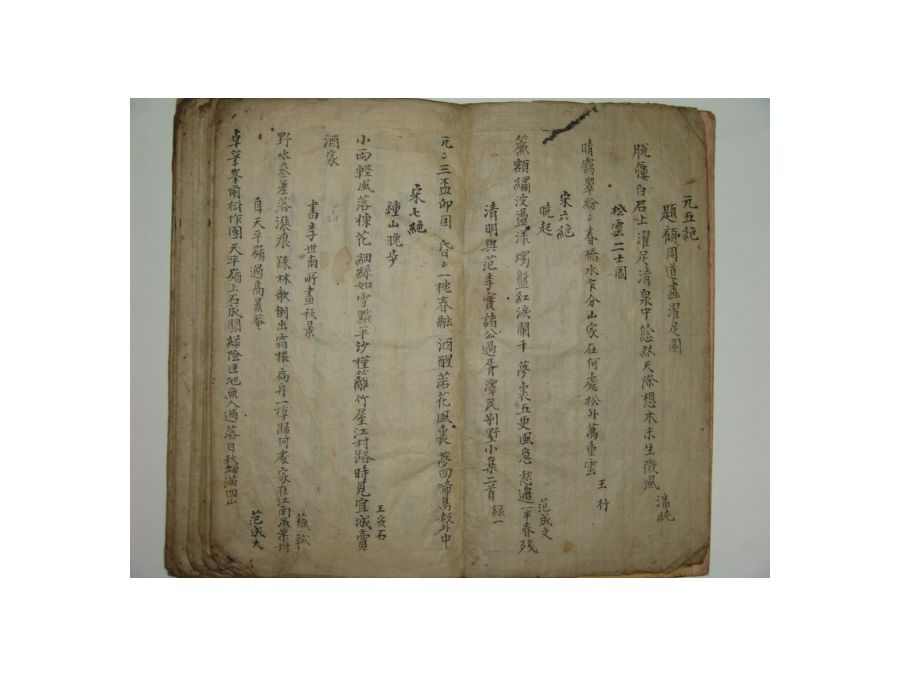 元五絶
題顧周道畫濯足圖
脱屨白石上濯足清泉中悠然天際想木末生微風
潘純
松雲二士圖
晴靄翠紛〻春橋水乍分山家在何處松外萬重雲
王行
宋六絶
曉起
簾額繡波盪漾燭盤紅淚闌干夢裏五更風急愁邉一半春殘
范成大
清明與范季實諸公過胥澤民别墅小集二首 録一
兀〻三盃卯困昏〻一枕春融酒醒落花風裏夢回啼鳥聲中
宋七絶
鍾山晚步
小雨輕風落楝花細紅如雪點平沙槿籬竹屋江村路時見宜城賣
酒家
王安石
書李世南所畫秋景
野水參差落漲痕疎林欹倒出霜根扁舟一棹歸何處家在江南黄葉村
蘇軾
自天平嶺過高景菴
卓筆峯前樹作團天平嶺上石成關綠陰匝地無人過落日秋蟬滿四山
范成大